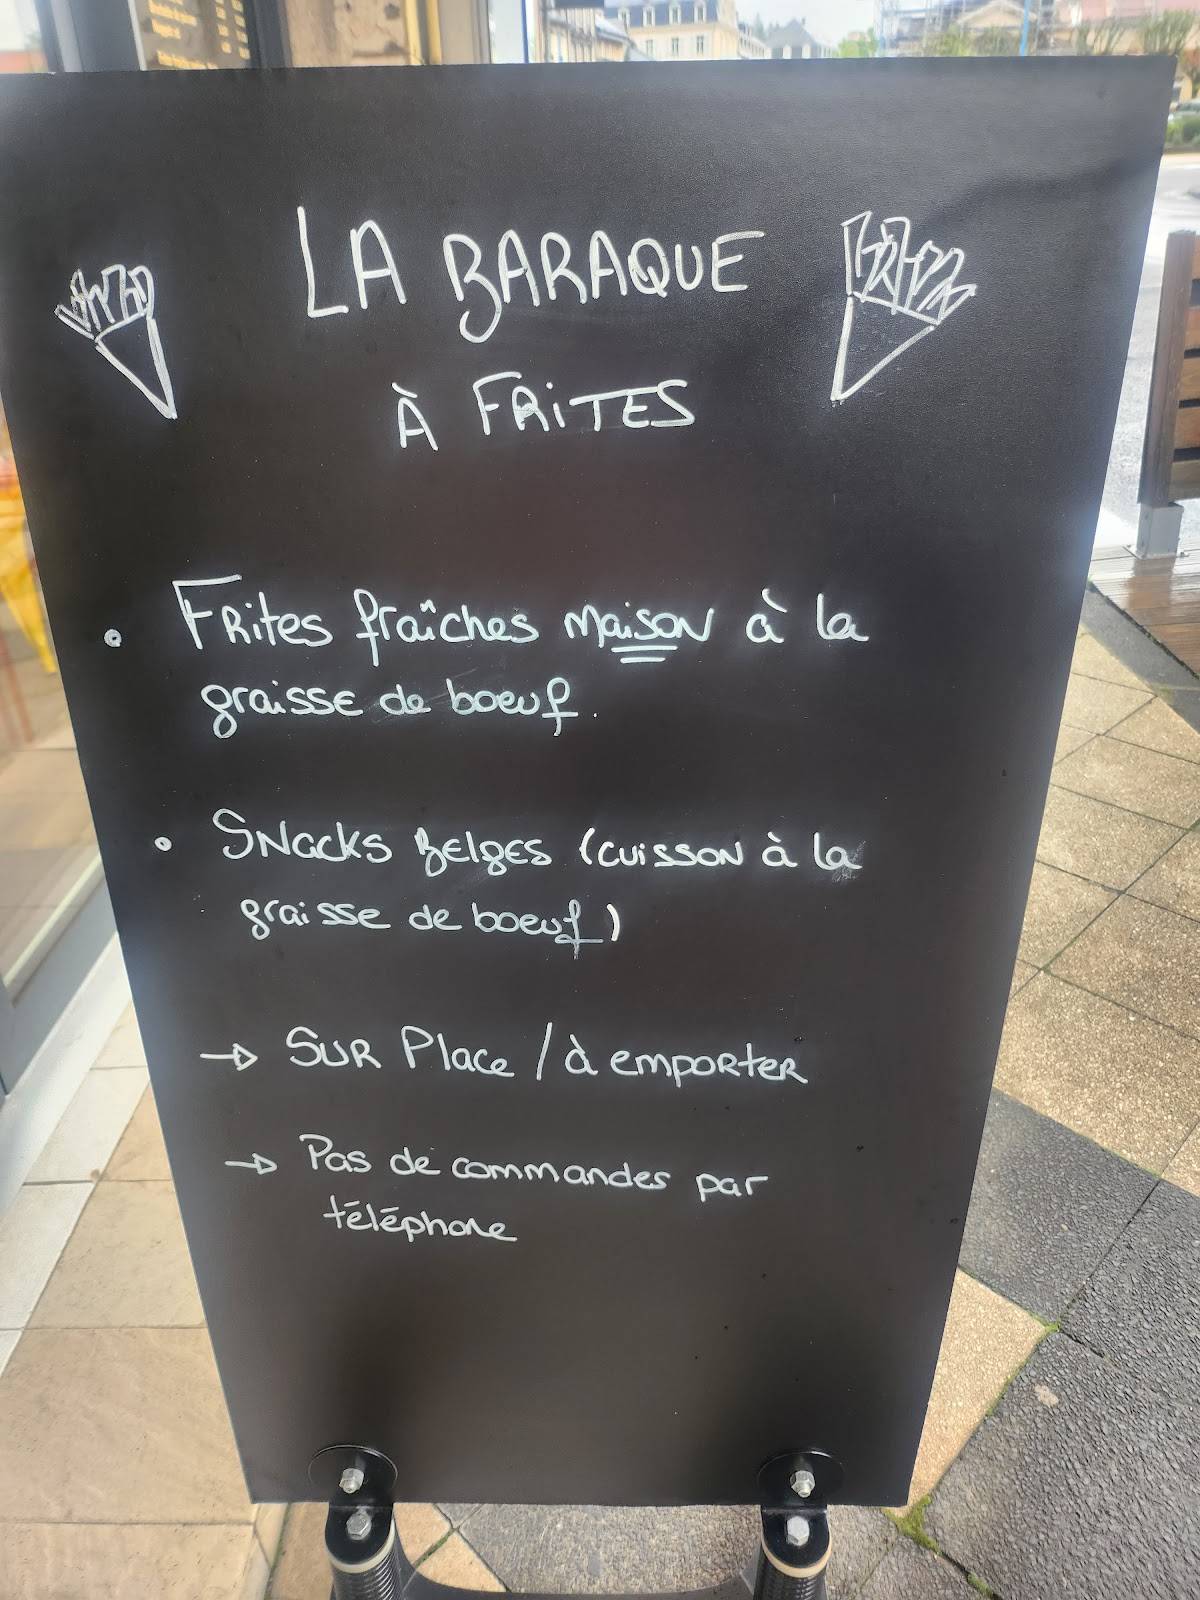 LA BARAQUE
À FRITES
• Frites fraîches maison à la
graisse de boeuf.
• Snacks Belges (cuisson à la
graisse de boeuf)
→ Sur Place / à emporter
→ Pas de commandes par
téléphone